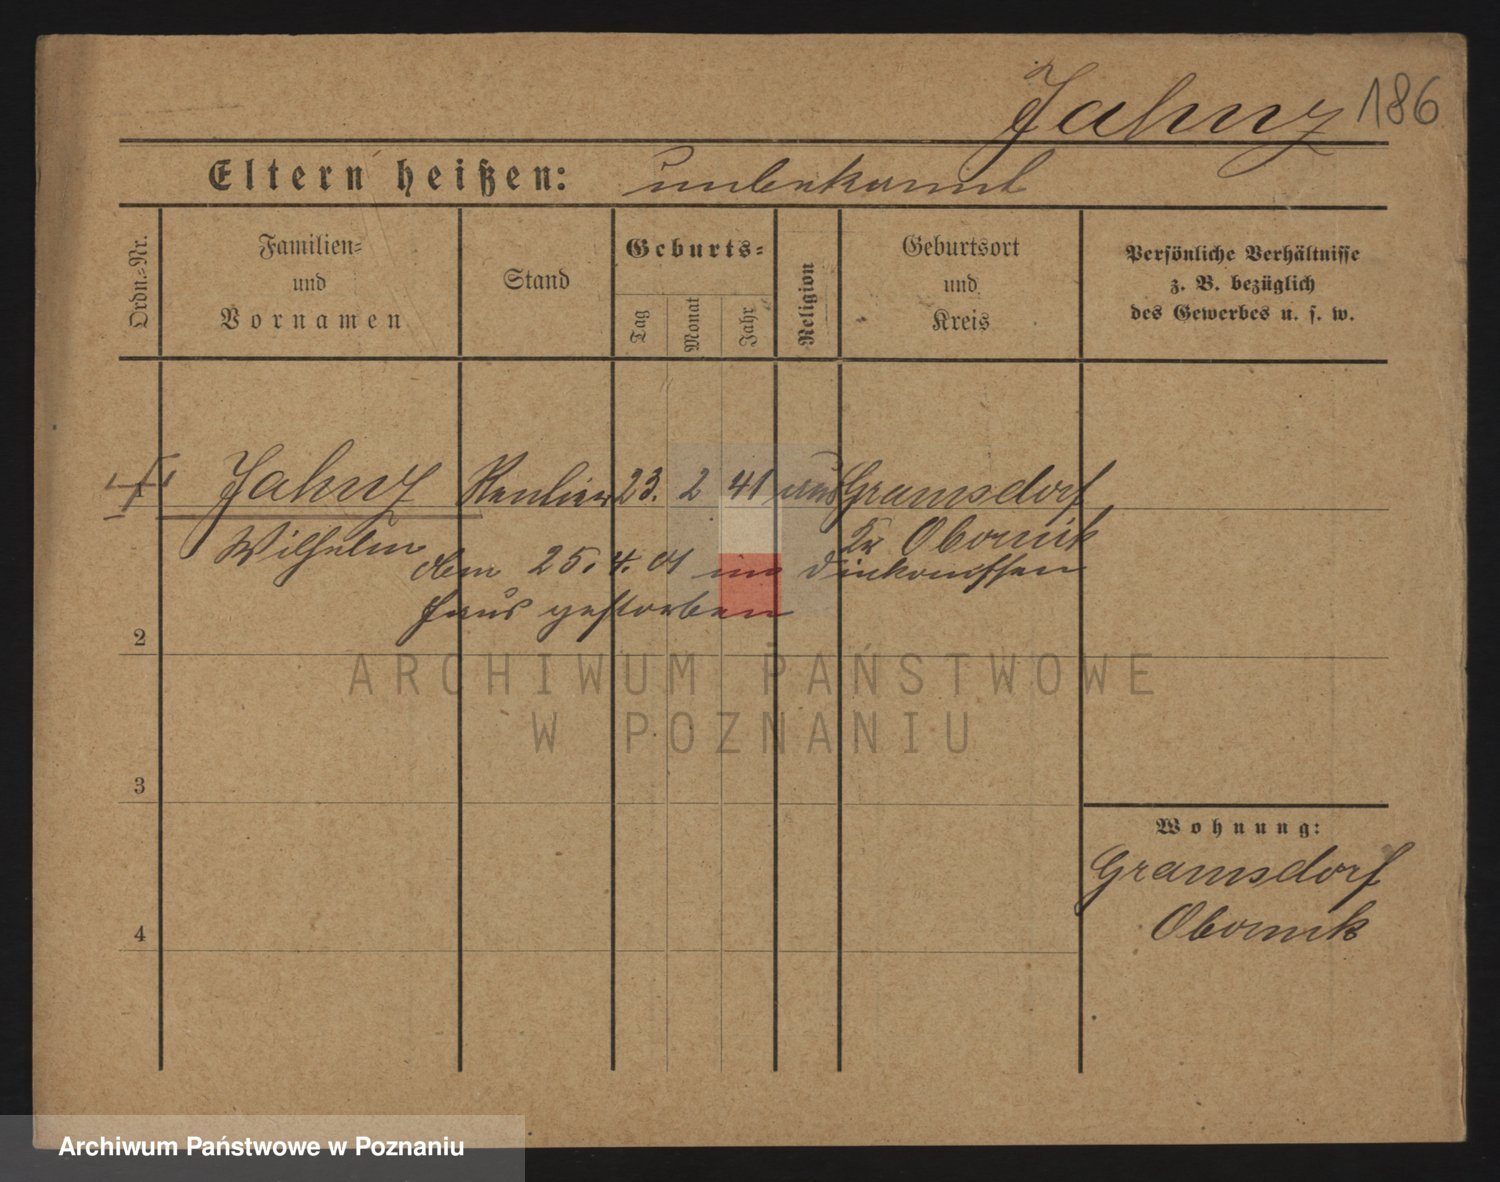 Jahnz 186
Eltern heißen: unbekannt
Ordn.=Nr.
Familien=
und
Vornamen
Stand
Geburts=
Tag
Monat
Jahr
Religion
Geburtsort
und
Kreis
Persönliche Verhältnisse
z. B. bezüglich
des Gewerbes u. s. w.
1 Jahnz Rentier 23. 2 41 Gramsdorf
Wilhelm Kr Obornik
den 25. 4. 01 im Diakonissen
haus gestorben
2
ARCHIWUM PAŃSTWOWE
W POZNANIU
3
Wohnung:
Gramsdorf
Obornik
4
Archiwum Państwowe w Poznaniu